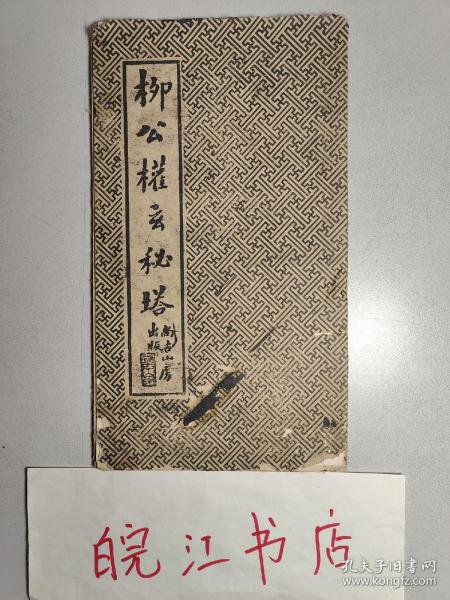 柳公權玄秘塔
尚古山房
出版
皖江书店
孔夫子旧书网
www.kongfz.com